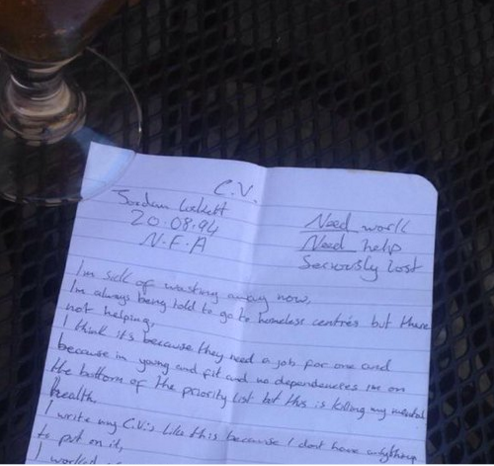 C.V.
Jordan
20.08.94
N.F.A
Need work
Need help
Seriously lost
Im sick of wasting away now,
Im always being told to go to homeless centres but there
not helping,
I think its because they need a job for one and
because im young and fit and no dependencies im on
the bottom of the priority list but this is killing my mental
health.
I write my C.V.'s like this because I dont have anything
to put on it,
I worked